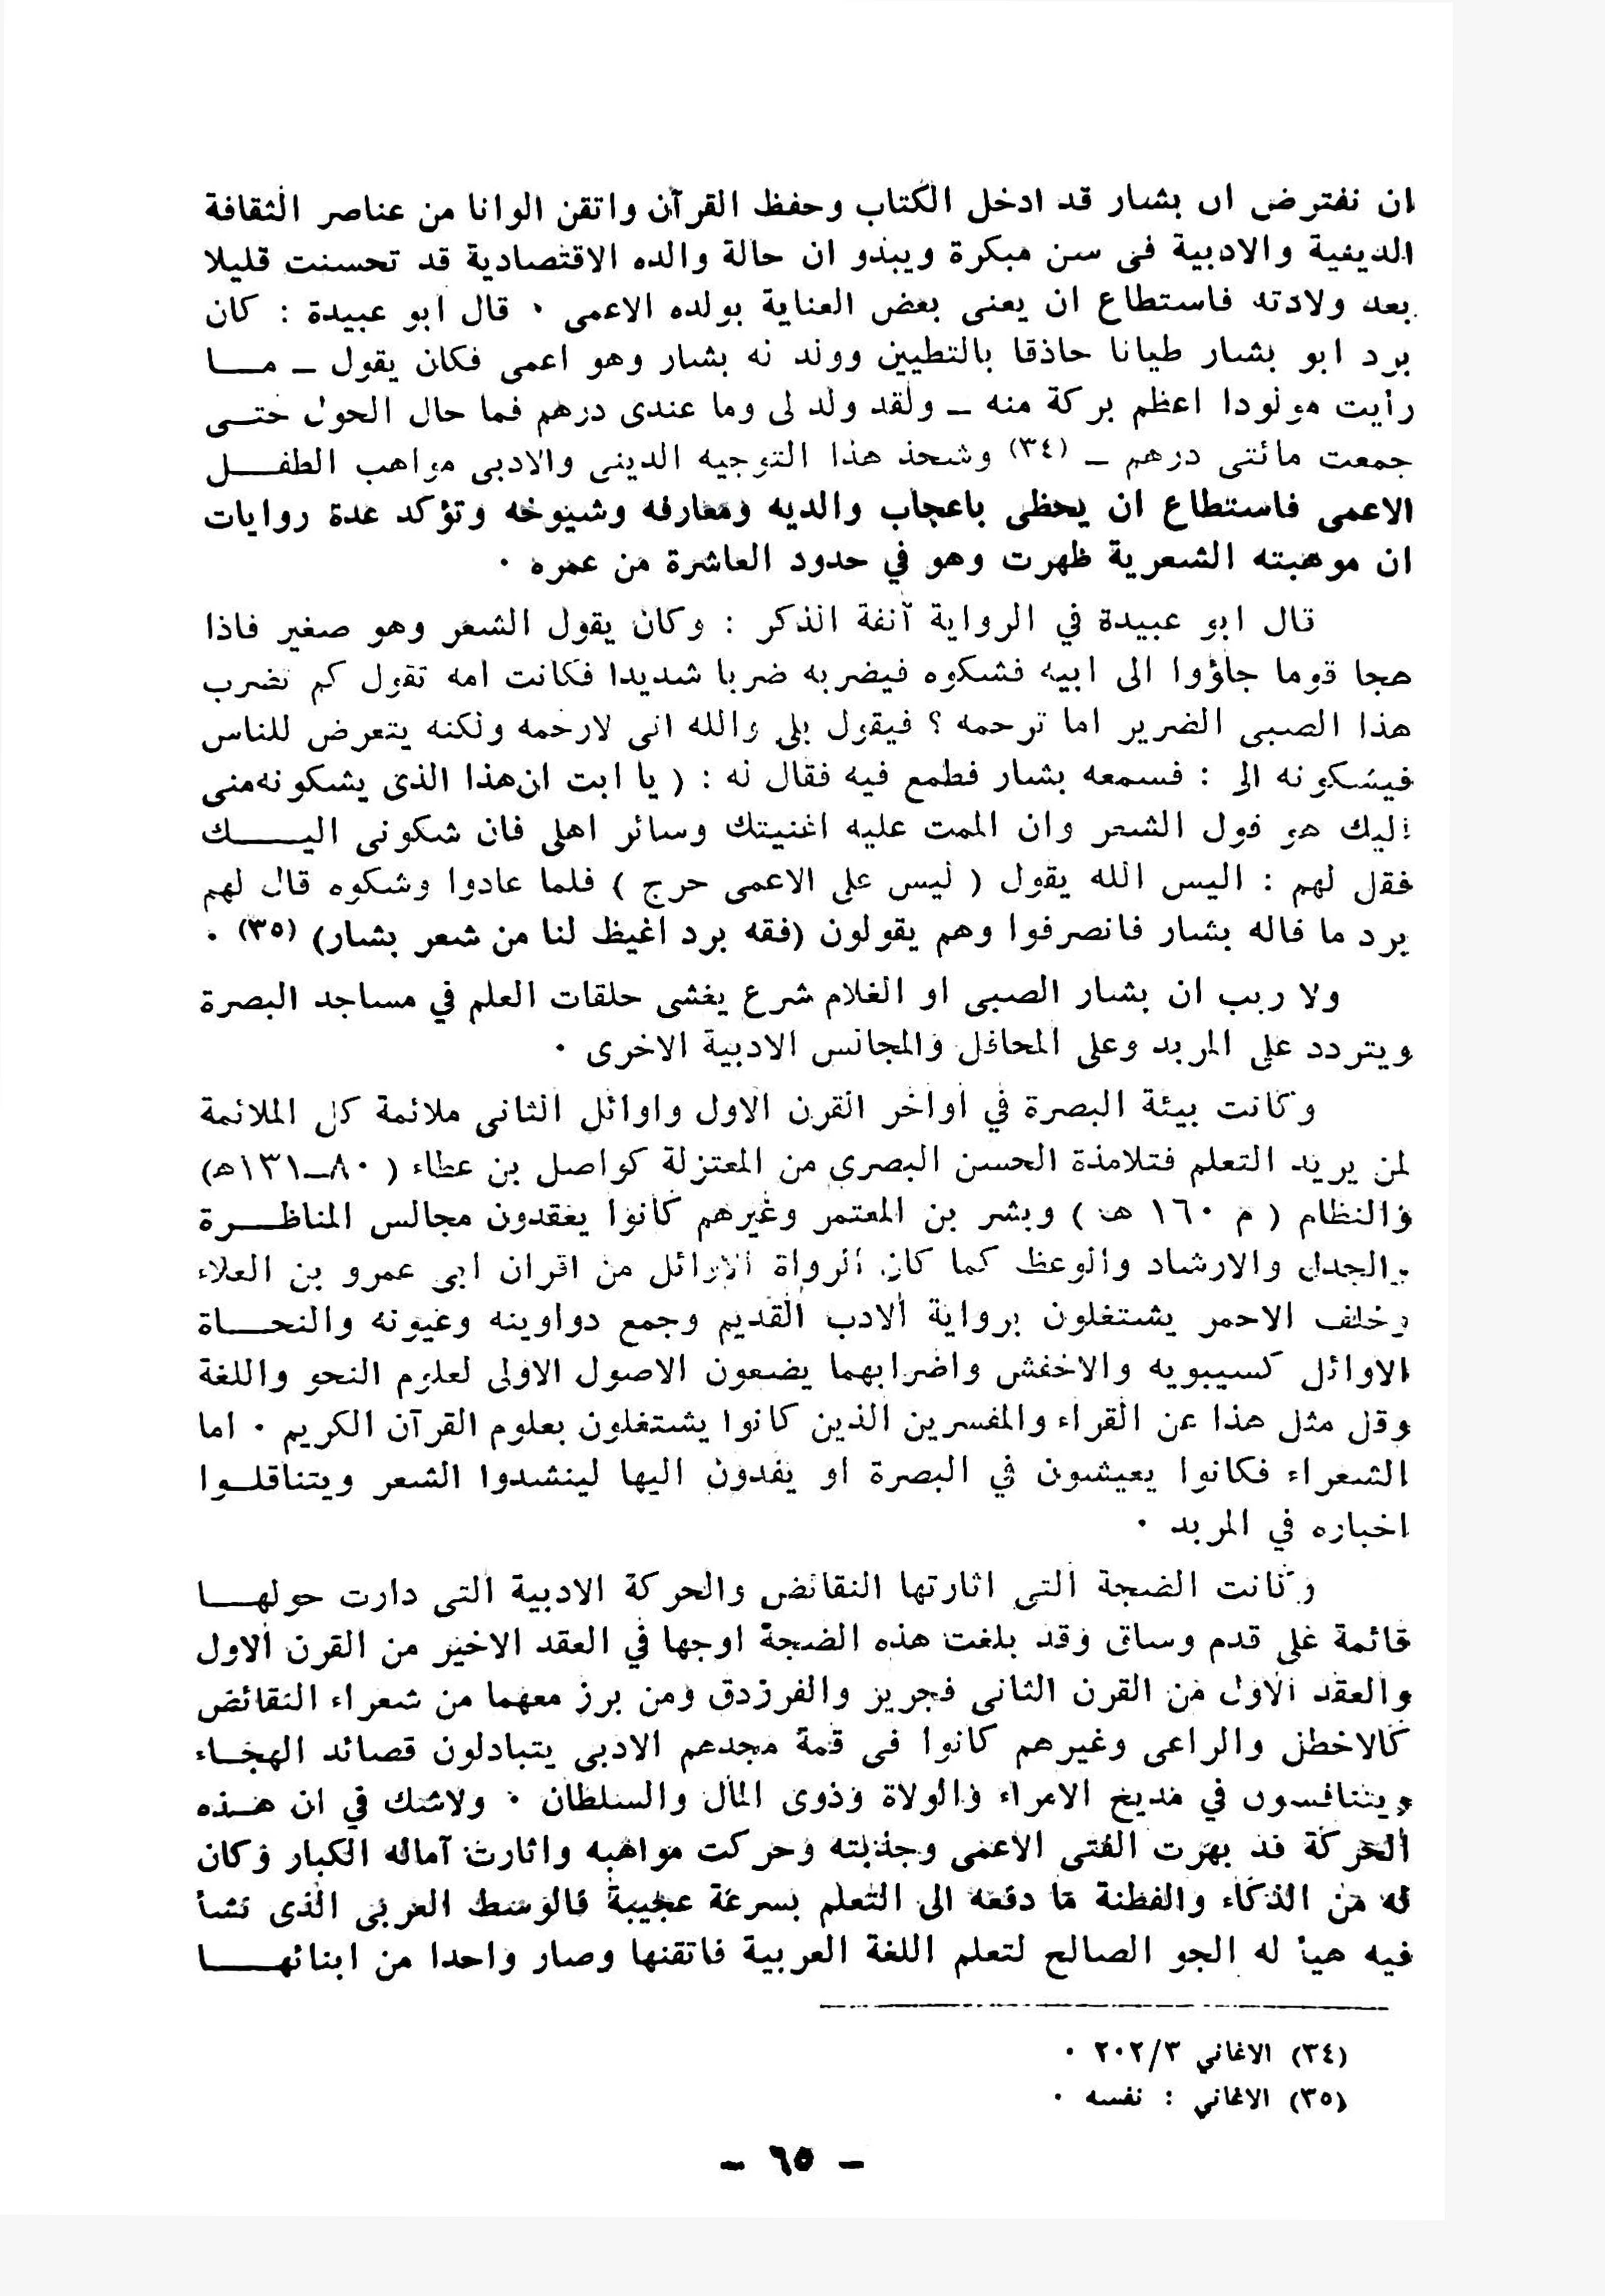 ان نفترض ان بشار قد ادخل الكتاب وحفظ القرآن واتقن الوانا من عناصر الثقافة
الدينية والادبية فى سن مبكرة ويبدو ان حالة والده الاقتصادية قد تحسنت قليلا
بعد ولادته فاستطاع ان يعنى بعض العناية بولده الاعمى ٠ قال ابو عبيدة : كان
برد ابو بشار طيانا حاذقا بالتطيين وولد له بشار وهو اعمى فكان يقول ــ مـــا
رأيت مولودا اعظم بركة منه ــ ولقد ولد لى وما عندى درهم فما حال الحول حتــى
جمعت مائتى درهم ــ (٣٤) وشحذ هذا التوجيه الدينى والادبى مواهب الطفـــل
الاعمى فاستطاع ان يحظى باعجاب والديه ومعارفه وشيوخه وتؤكد عدة روايات
ان موهبته الشعرية ظهرت وهو في حدود العاشرة من عمره ٠
قال ابو عبيدة في الرواية آنفة الذكر : وكان يقول الشعر وهو صغير فاذا
هجا قوما جاؤوا الى ابيه فشكوه فيضربه ضربا شديدا فكانت امه تقول كم تضرب
هذا الصبى الضرير اما ترحمه ؟ فيقول بلى والله انى لارحمه ولكنه يتعرض للناس
فيشكونه الى : فسمعه بشار فطمع فيه فقال له : ( يا ابت ان هذا الذى يشكونه منى
اليك هو قول الشعر وان الممت عليه اغنيتك وسائر اهلى فان شكونى اليـــــك
فقل لهم : اليس الله يقول ( ليس على الاعمى حرج ) فلما عادوا وشكوه قال لهم
برد ما قاله بشار فانصرفوا وهم يقولون (فقه برد اغيظ لنا من شعر بشار) (٣٥) ٠
ولا ريب ان بشار الصبى او الغلام شرع يغشى حلقات العلم في مساجد البصرة
ويتردد على المربد وعلى المحافل والمجالس الادبية الاخرى ٠
وكانت بيئة البصرة في اواخر القرن الاول واوائل الثانى ملائمة كل الملائمة
لمن يريد التعلم فتلامذة الحسن البصرى من المعتزلة كواصل بن عطاء ( ٨٠ــ١٣١هـ)
والنظام ( م ١٦٠ هـ ) وبشر بن المعتمر وغيرهم كانوا يعقدون مجالس المناظــــرة
والجدل والارشاد والوعظ كما كان الرواة الاوائل من اقران ابى عمرو بن العلاء
وخلف الاحمر يشتغلون برواية الادب القديم وجمع دواوينه وعيونه والنحـــاة
الاوائل كسيبويه والاخفش واضرابهما يضعون الاصول الاولى لعلوم النحو واللغة
وقل مثل هذا عن القراء والمفسرين الذين كانوا يشتغلون بعلوم القرآن الكريم ٠ اما
الشعراء فكانوا يعيشون في البصرة او يفدون اليها لينشدوا الشعر ويتناقلــوا
اخباره في المربد ٠
وكانت الضجة التى اثارتها النقائض والحركة الادبية التى دارت حولهـــا
قائمة على قدم وساق وقد بلغت هذه الضجة اوجها في العقد الاخير من القرن الاول
والعقد الاول من القرن الثانى فجرير والفرزدق ومن برز معهما من شعراء النقائض
كالاخطل والراعى وغيرهم كانوا فى قمة مجدهم الادبى يتبادلون قصائد الهجـاء
ويتنافسون في مديح الامراء والولاة وذوى المال والسلطان ٠ ولاشك في ان هــذه
الحركة قد بهرت الفتى الاعمى وجذبته وحركت مواهبه واثارت آماله الكبار وكان
له من الذكاء والفطنة ما دفعه الى التعلم بسرعة عجيبة فالوسط العربى الذى نشأ
فيه هيأ له الجو الصالح لتعلم اللغة العربية فاتقنها وصار واحدا من ابنائهـــا
(٣٤) الاغاني ٢٠٢/٣ ٠
(٣٥) الاغاني : نفسه ٠
ــ ٦٥ ــ